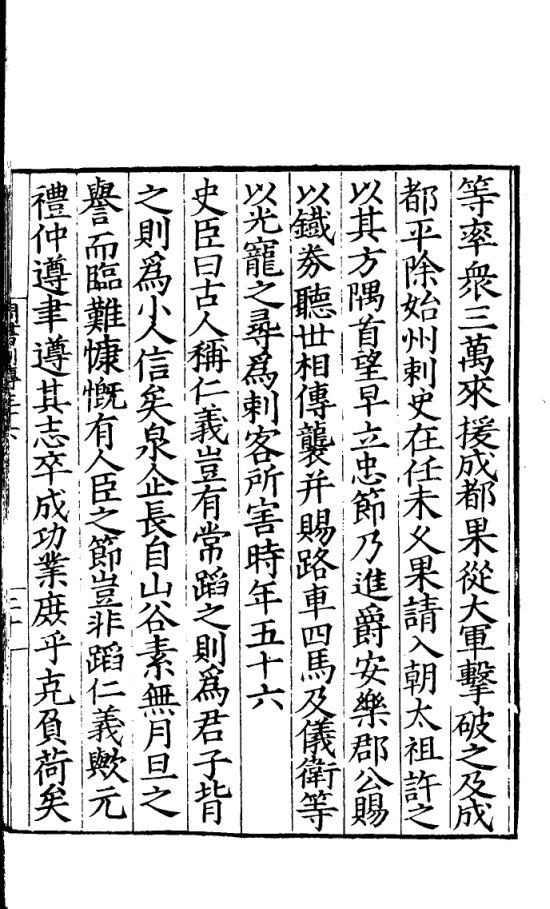 等率衆三萬來援成都果從大軍擊破之及成
都平除始州刺史在任未久果請入朝太祖許之
以其方隅首望早立忠節乃進爵安樂郡公賜
以鐵券聽世相傳襲并賜路車四馬及儀衛等
以光寵之尋爲刺客所害時年五十六
史臣曰古人稱仁義豈有常蹈之則爲君子背
之則爲小人信矣泉企長自山谷素無月旦之
譽而臨難慷慨有人臣之節豈非蹈仁義歟元
禮仲遵聿遵其志卒成功業庶乎克負荷矣